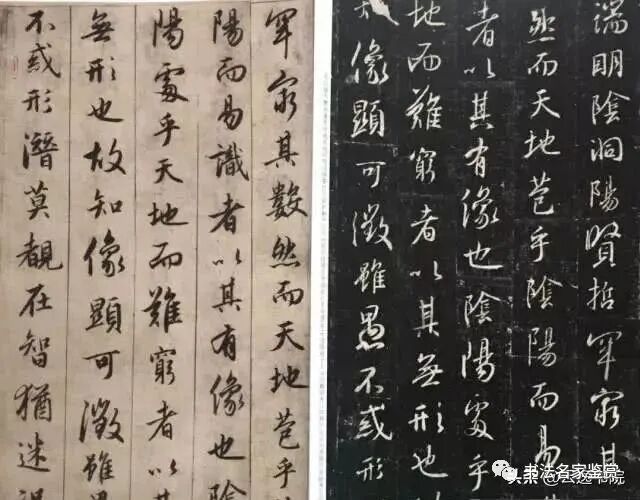 罕窮其數然而天地苞乎
陽而易識者以其有像也陰
陽處乎天地而難窮者以其
無形也故知像顯可徵雖
不惑形潛莫覩在智猶迷
端明陰洞陽賢哲罕窮其
然而天地苞乎陰陽而易
者以其有像也陰陽處乎
地而難窮者以其無形也
像顯可徵雖愚不惑形
书法名家鉴赏